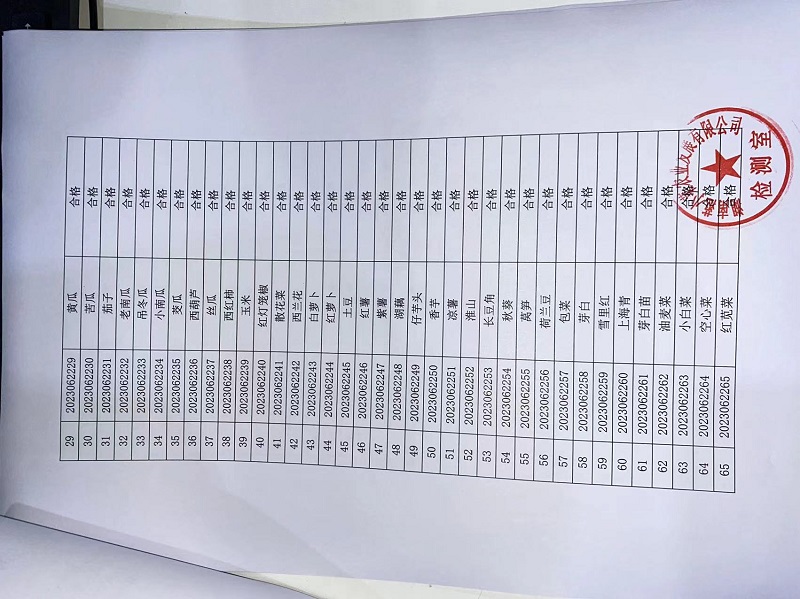 29 2023062229 黄瓜 合格
30 2023062230 苦瓜 合格
31 2023062231 茄子 合格
32 2023062232 老南瓜 合格
33 2023062233 吊冬瓜 合格
34 2023062234 小南瓜 合格
35 2023062235 茭瓜 合格
36 2023062236 西葫芦 合格
37 2023062237 丝瓜 合格
38 2023062238 西红柿 合格
39 2023062239 玉米 合格
40 2023062240 红灯笼椒 合格
41 2023062241 散花菜 合格
42 2023062242 西兰花 合格
43 2023062243 白萝卜 合格
44 2023062244 红萝卜 合格
45 2023062245 土豆 合格
46 2023062246 红薯 合格
47 2023062247 紫薯 合格
48 2023062248 湖藕 合格
49 2023062249 仔芋头 合格
50 2023062250 香芋 合格
51 2023062251 凉薯 合格
52 2023062252 淮山 合格
53 2023062253 长豆角 合格
54 2023062254 秋葵 合格
55 2023062255 莴笋 合格
56 2023062256 荷兰豆 合格
57 2023062257 包菜 合格
58 2023062258 芽白 合格
59 2023062259 雪里红 合格
60 2023062260 上海青 合格
61 2023062261 芽白苗 合格
62 2023062262 油麦菜 合格
63 2023062263 小白菜 合格
64 2023062264 空心菜 合格
65 2023062265 红苋菜 合格
业发展有限公司
检测室